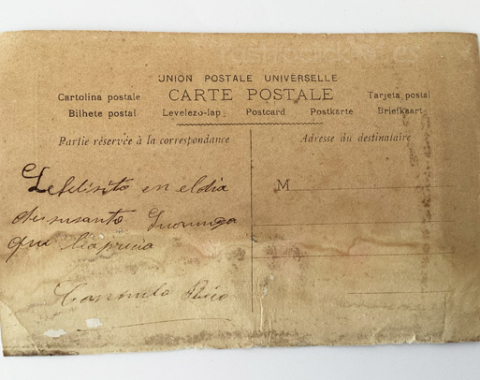 UNION POSTALE UNIVERSELLE
CARTE POSTALE
Cartolina postale
Tarjeta postal
Bilhete postal Levelezo-lap Postcard Postkarte Briefkaart
Partie réservée à la correspondance
Adresse du destinataire
M
Lefelisito en eldia
desusanto
que